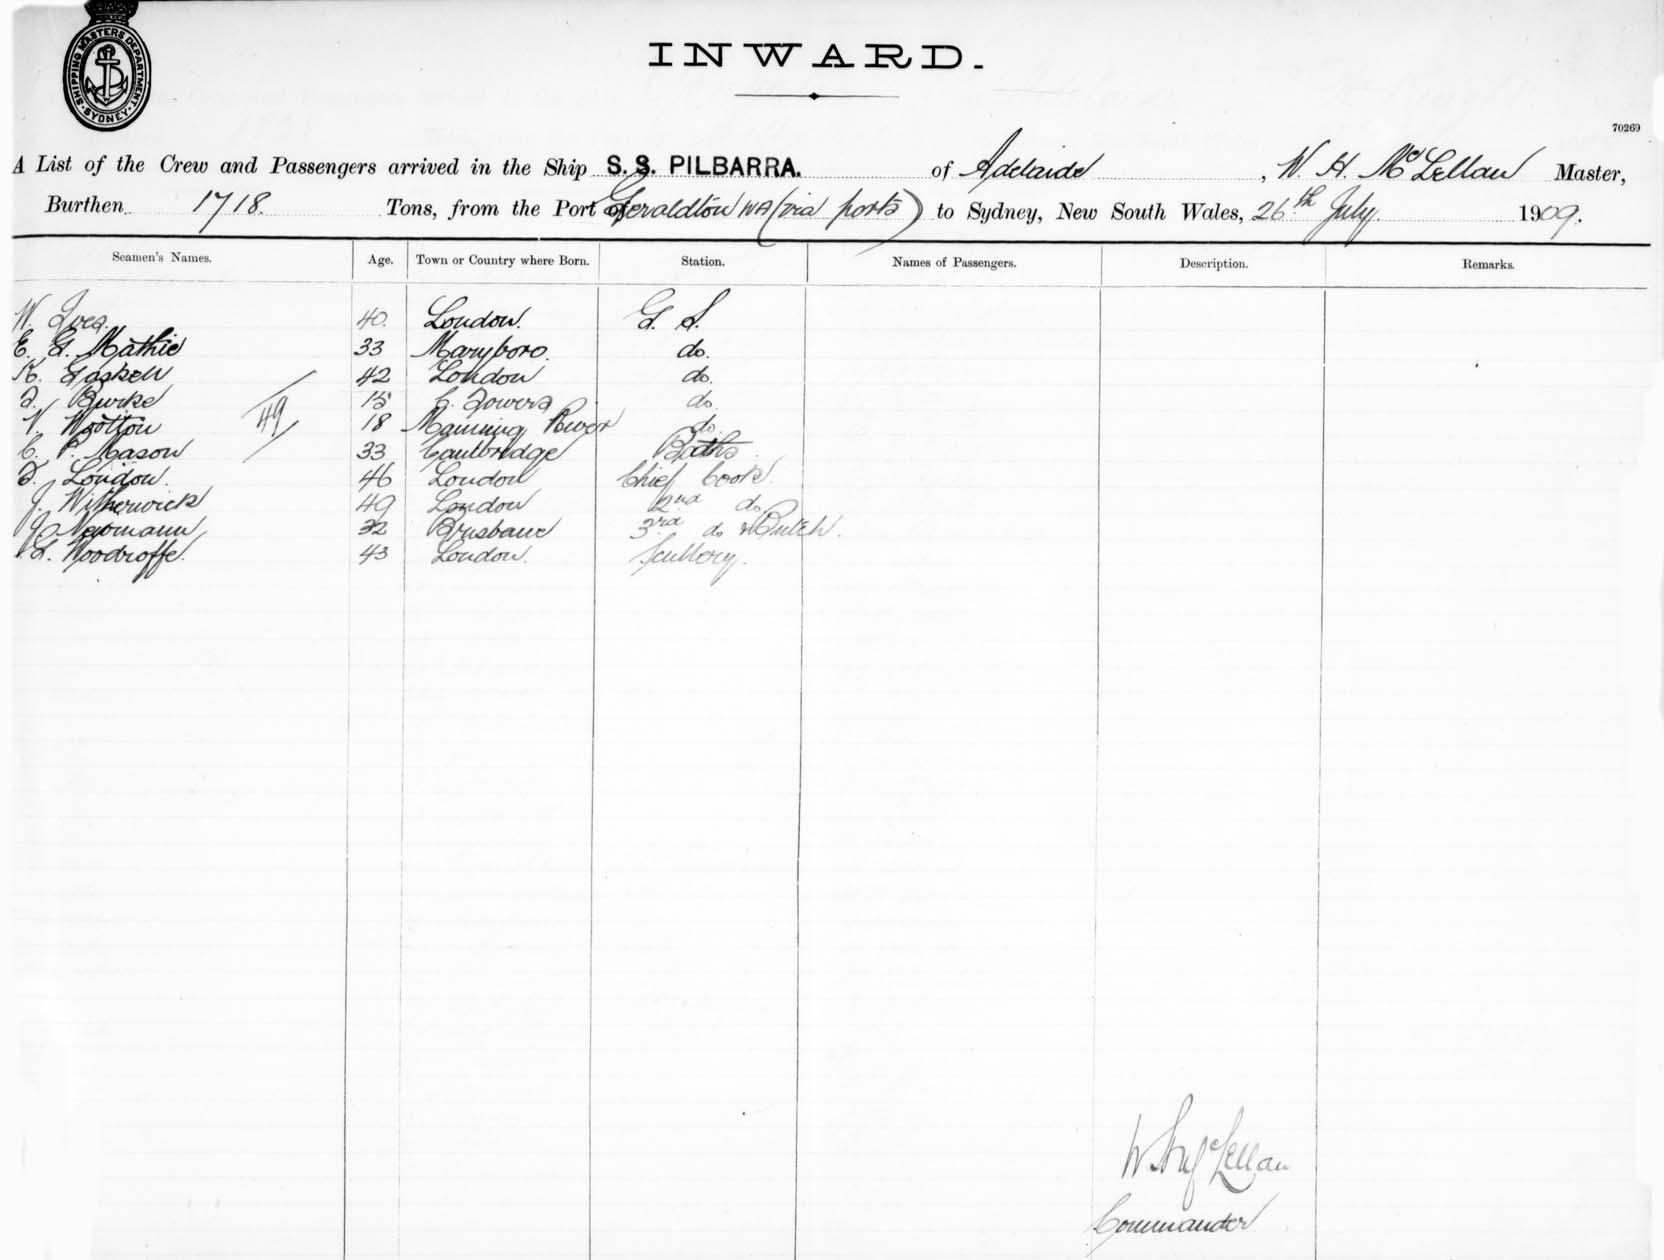 SHIPPING MASTERS DEPARTMENT. SYDNEY.
INWARD.
70269
A List of the Crew and Passengers arrived in the Ship S.S. PILBARRA. of Adelaide, W. H. McLellan Master,
Burthen 1718. Tons, from the Port of Geraldton WA (via ports) to Sydney, New South Wales, 26th July. 1909.
Seamen's Names. Age. Town or Country where Born. Station. Names of Passengers. Description. Remarks.
W. Ives. 40. London. G. S.
E. G. Mathie 33 Maryboro. do.
K. Gaskell 42 London do.
Burke 15 C. Towers do
49
V. Wootton 18 Manning River do.
C. P. Mason 33 Cambridge Baths.
D. London. 46 London Chief Cook.
J. Witherwick 49 London 2nd do
Newmann 32 Brisbane 3rd do & Butch.
L. Woodroffe. 43 London. Scullery.
W. H. McLellan
Commander